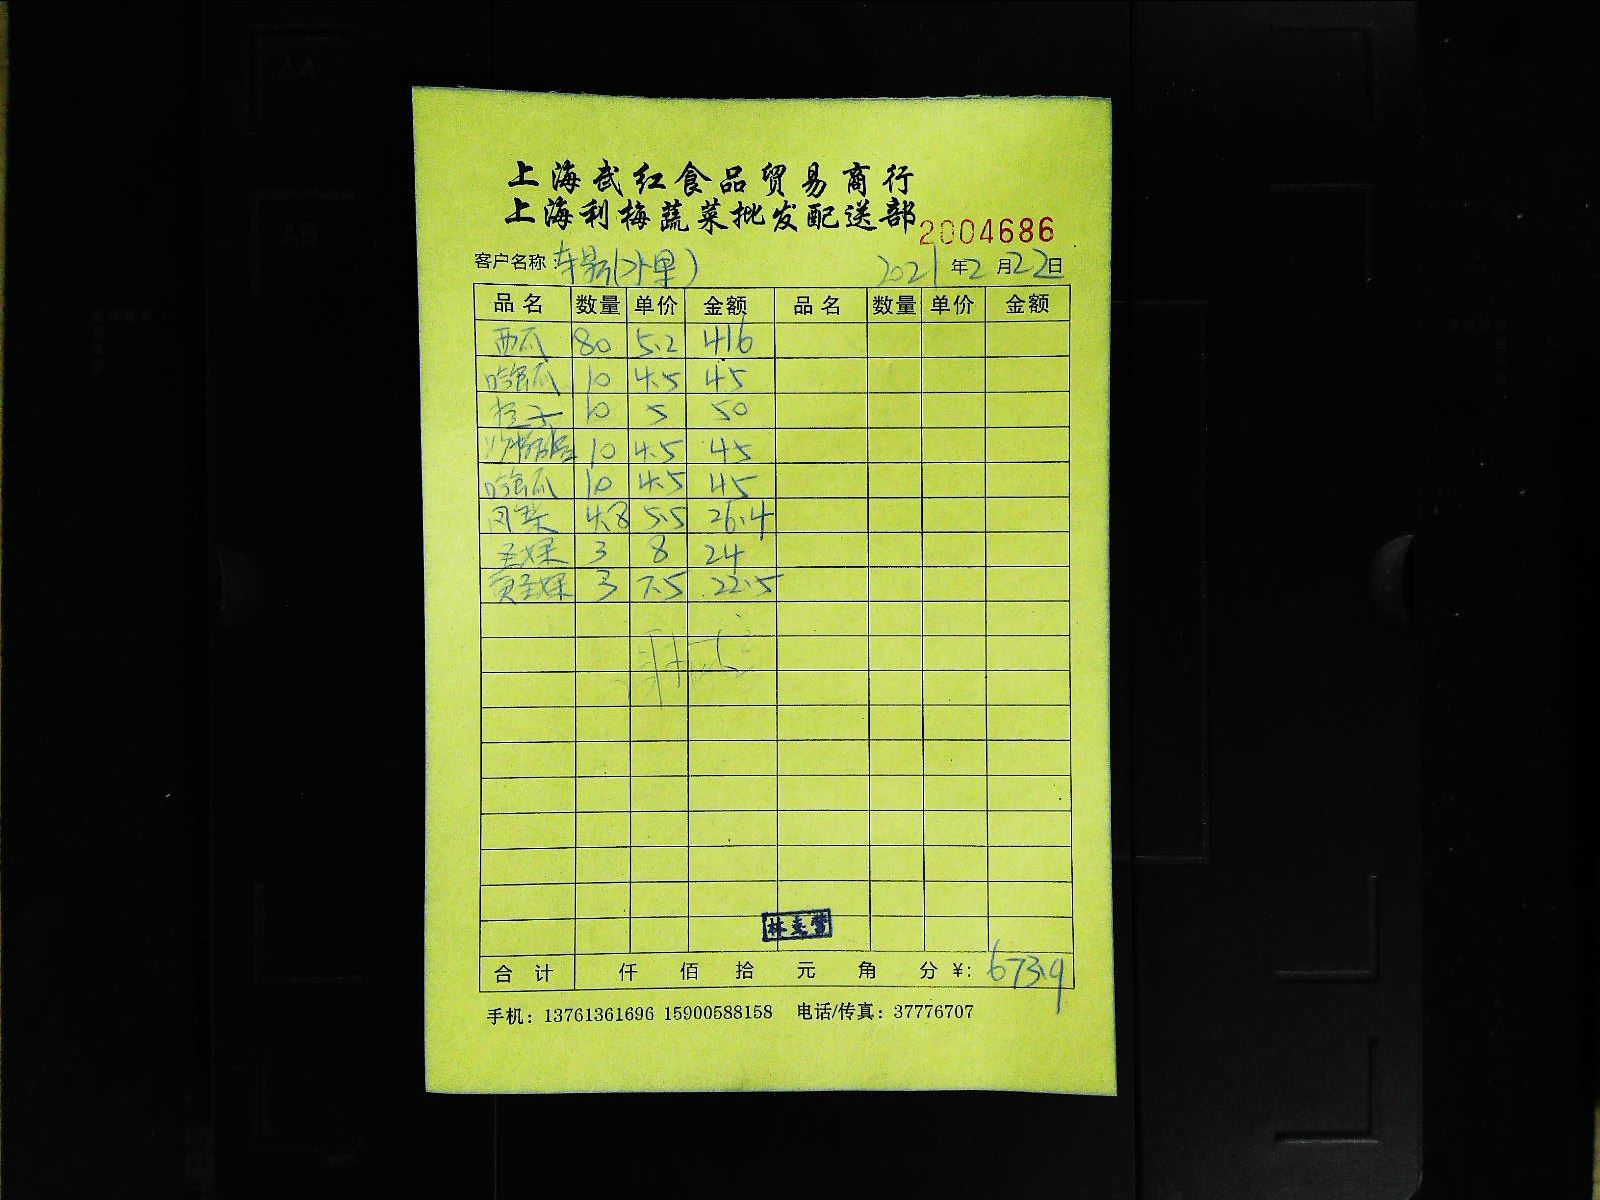 上海武红食品贸易商行
上海利梅蔬菜批发配送部 2004686
客户名称 2021年2月22日
品名 数量 单价 金额 品名 数量 单价 金额
西瓜 80 5.2 416
哈密瓜 10 4.5 45
橙子 10 5 50
10 4.5 45
哈密瓜 10 4.5 45
凤梨 4.8 5.5 26.4
圣女果 3 8 24
黄圣女果 3 7.5 22.5
合计 仟 佰 拾 元 角 分 ¥: 673.9
手机: 13761361696 15900588158 电话/传真: 37776707